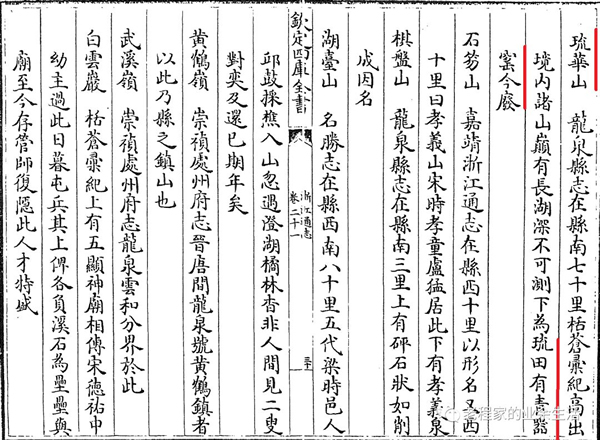 琉華山　龍泉縣志在縣南七十里栝蒼彚紀高出
境内諸山巔有長湖深不可測下為琉田有青器
窰今廢
石笏山　嘉靖浙江通志在縣西十里以形名又西
十里曰孝義山宋時孝童盧猛居此下有孝義泉
棋盤山　龍泉縣志在縣南三里上有砰石狀如削
成因名
湖臺山　名勝志在縣西南八十里五代梁時邑人
欽定四庫全書
浙江通志
卷二十一
三十
邱㪣採樵入山忽遇澄湖橘林香非人間見二叟
對奕及還已期年矣
黄鶴嶺　崇禎處州府志晉唐間龍泉號黄鶴鎮者
以此乃縣之鎮山也
武溪嶺　崇禎處州府志龍泉雲和分界於此
白雲巖　栝蒼彚紀上有五顯神廟相傳宋德祐中
幼主過此日暮屯兵其上俾各負溪石為壘壘與
廟至今存管師復隱此人才特盛
老程家的业余生活